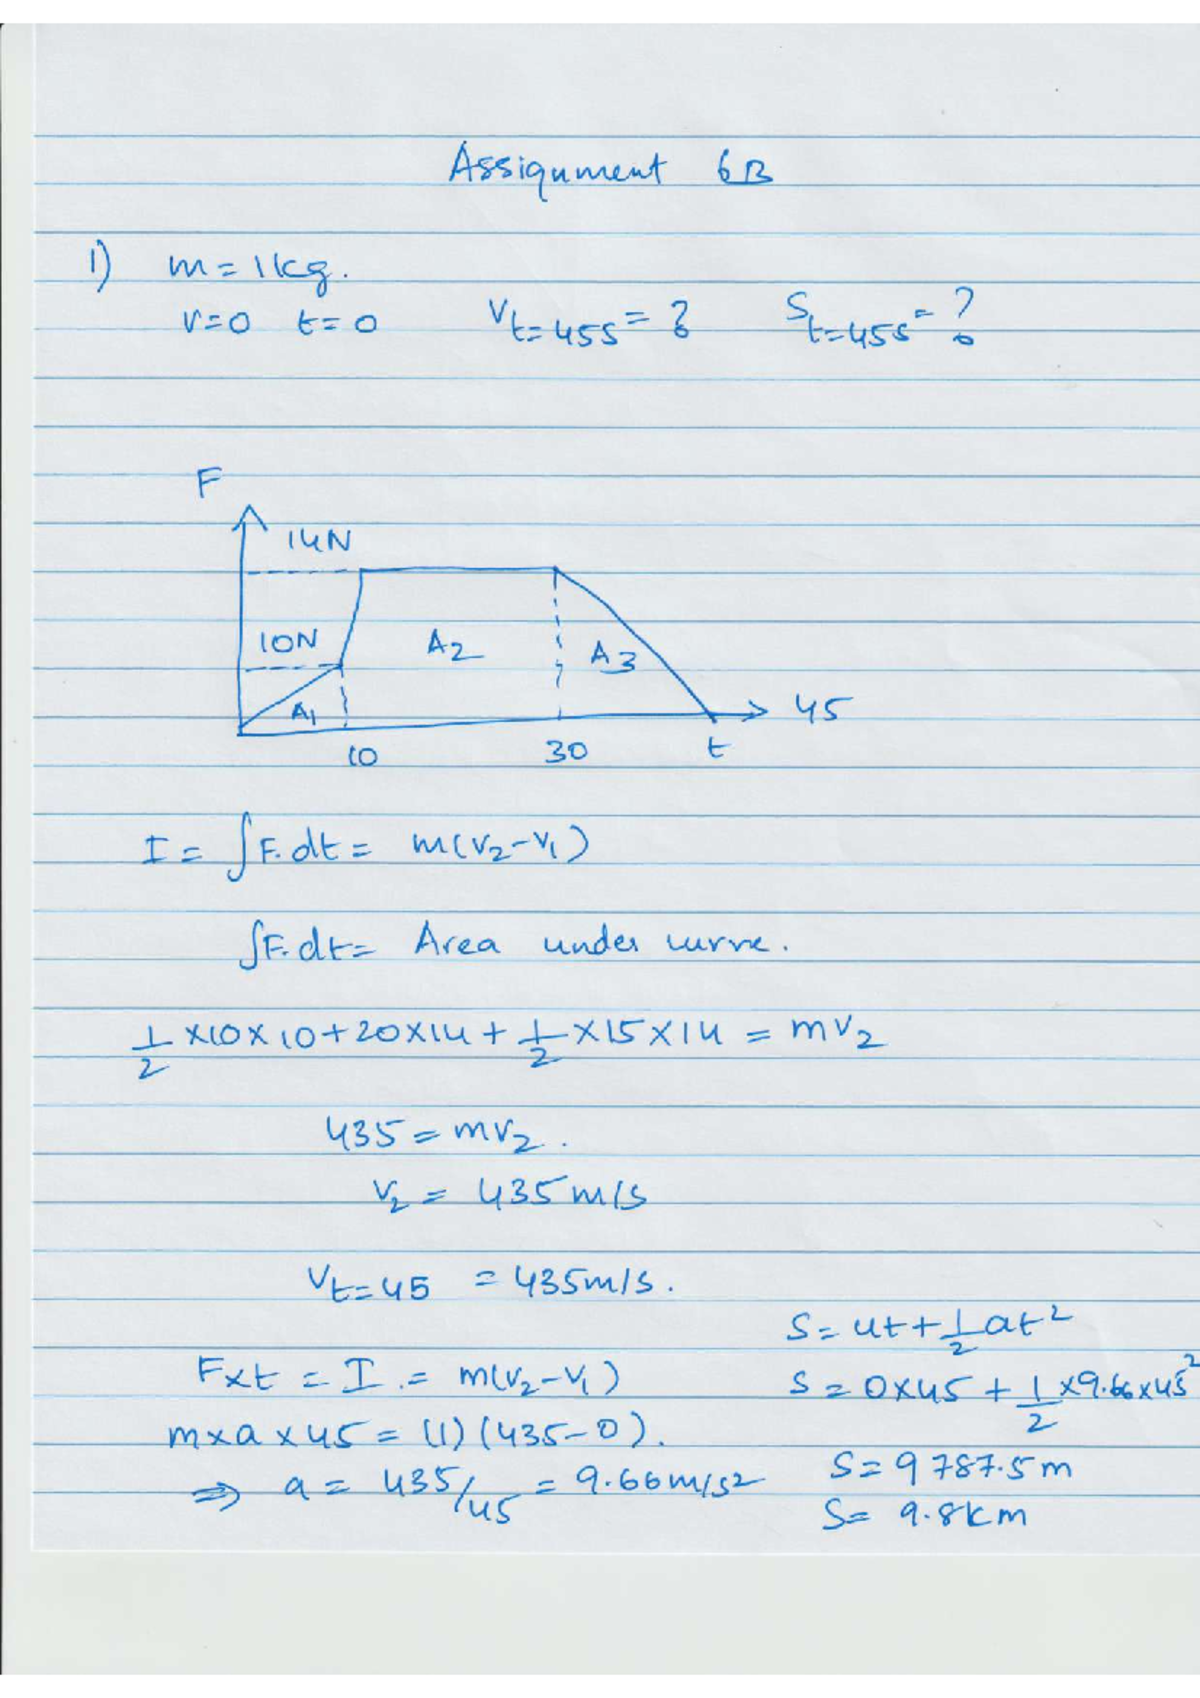 Assignment 6B
1) m = 1kg.
v=0 t=0 Vt=45s = ? St=45s = ?
F
14N
10N
A1
A2
A3
45
10 30 t
I = ∫F.dt = m(v2-v1)
∫F.dt = Area under curve.
1/2 ×10×10+20×14+1/2×15×14 = mv2
435 = mv2.
v2 = 435m/s
Vt=45 = 435m/s.
F×t = I .= m(v2-v1)
m×a×45 = (1)(435-0).
⇒ a = 435/45 = 9.66m/s2
S = ut+1/2at2
S = 0×45 + 1/2×9.66×452
S= 9787.5m
S= 9.8km